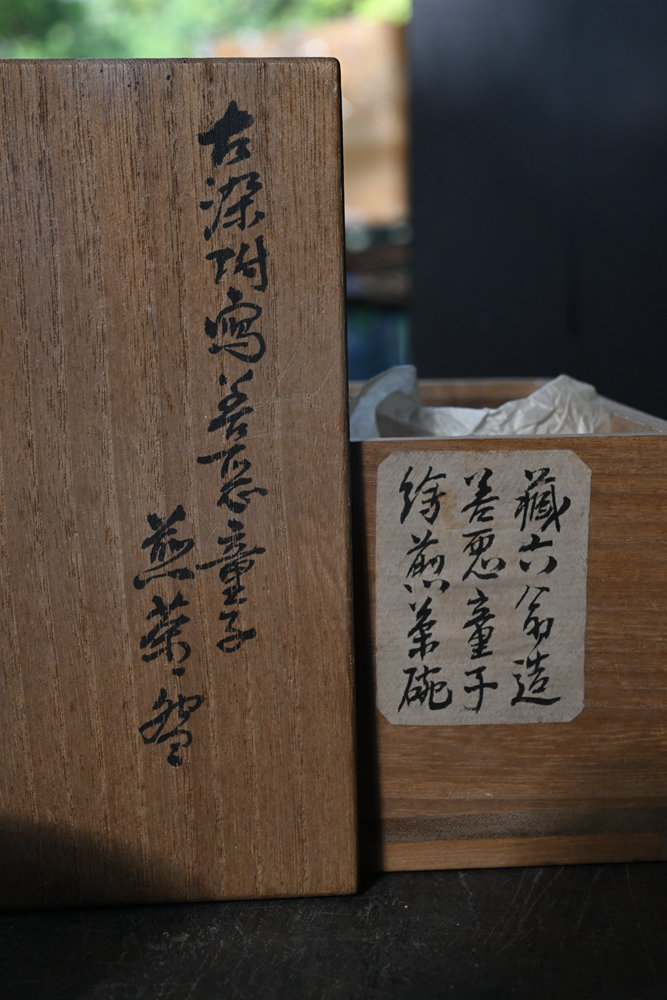 古染附寫善悪童子
煎茶盌
藏六翁造
善悪童子
繪煎茶碗